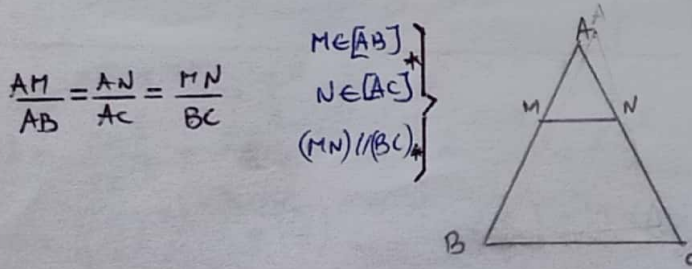 AM/AB = AN/AC = MN/BC
M∈[AB]
N∈[AC]
(MN)//(BC)
A
M N
B C